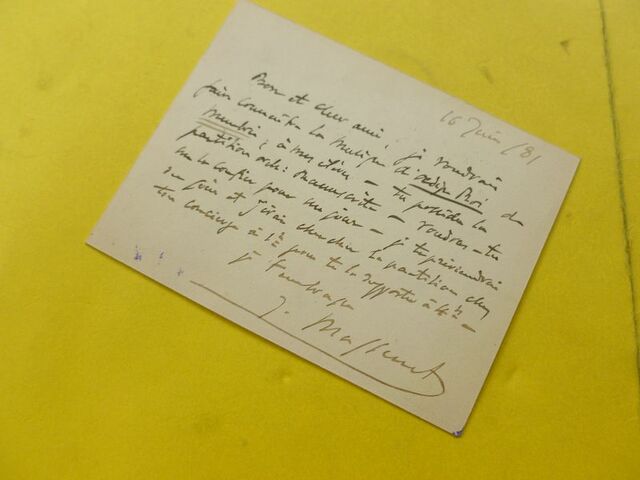 16 Juin /81
Bon et cher ami, je voudrais
faire connaître la musique d'Œdipe Roi de
Membrée, à mes élèves – tu possèdes la
partition orch: manuscrite – voudras-tu
me la confier pour un jour – je te préviendrai
du jour et j'irai chercher la partition chez
ton concierge à 1h pour te la rapporter à 4h ½ –
je t'embrasse
J. Massenet